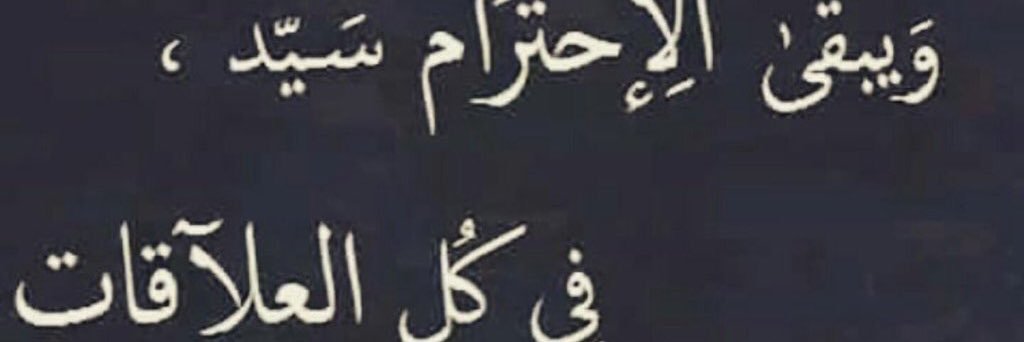 وَيبقىٰ الِإحترَام سَيّد ،
في كُل العلآقات